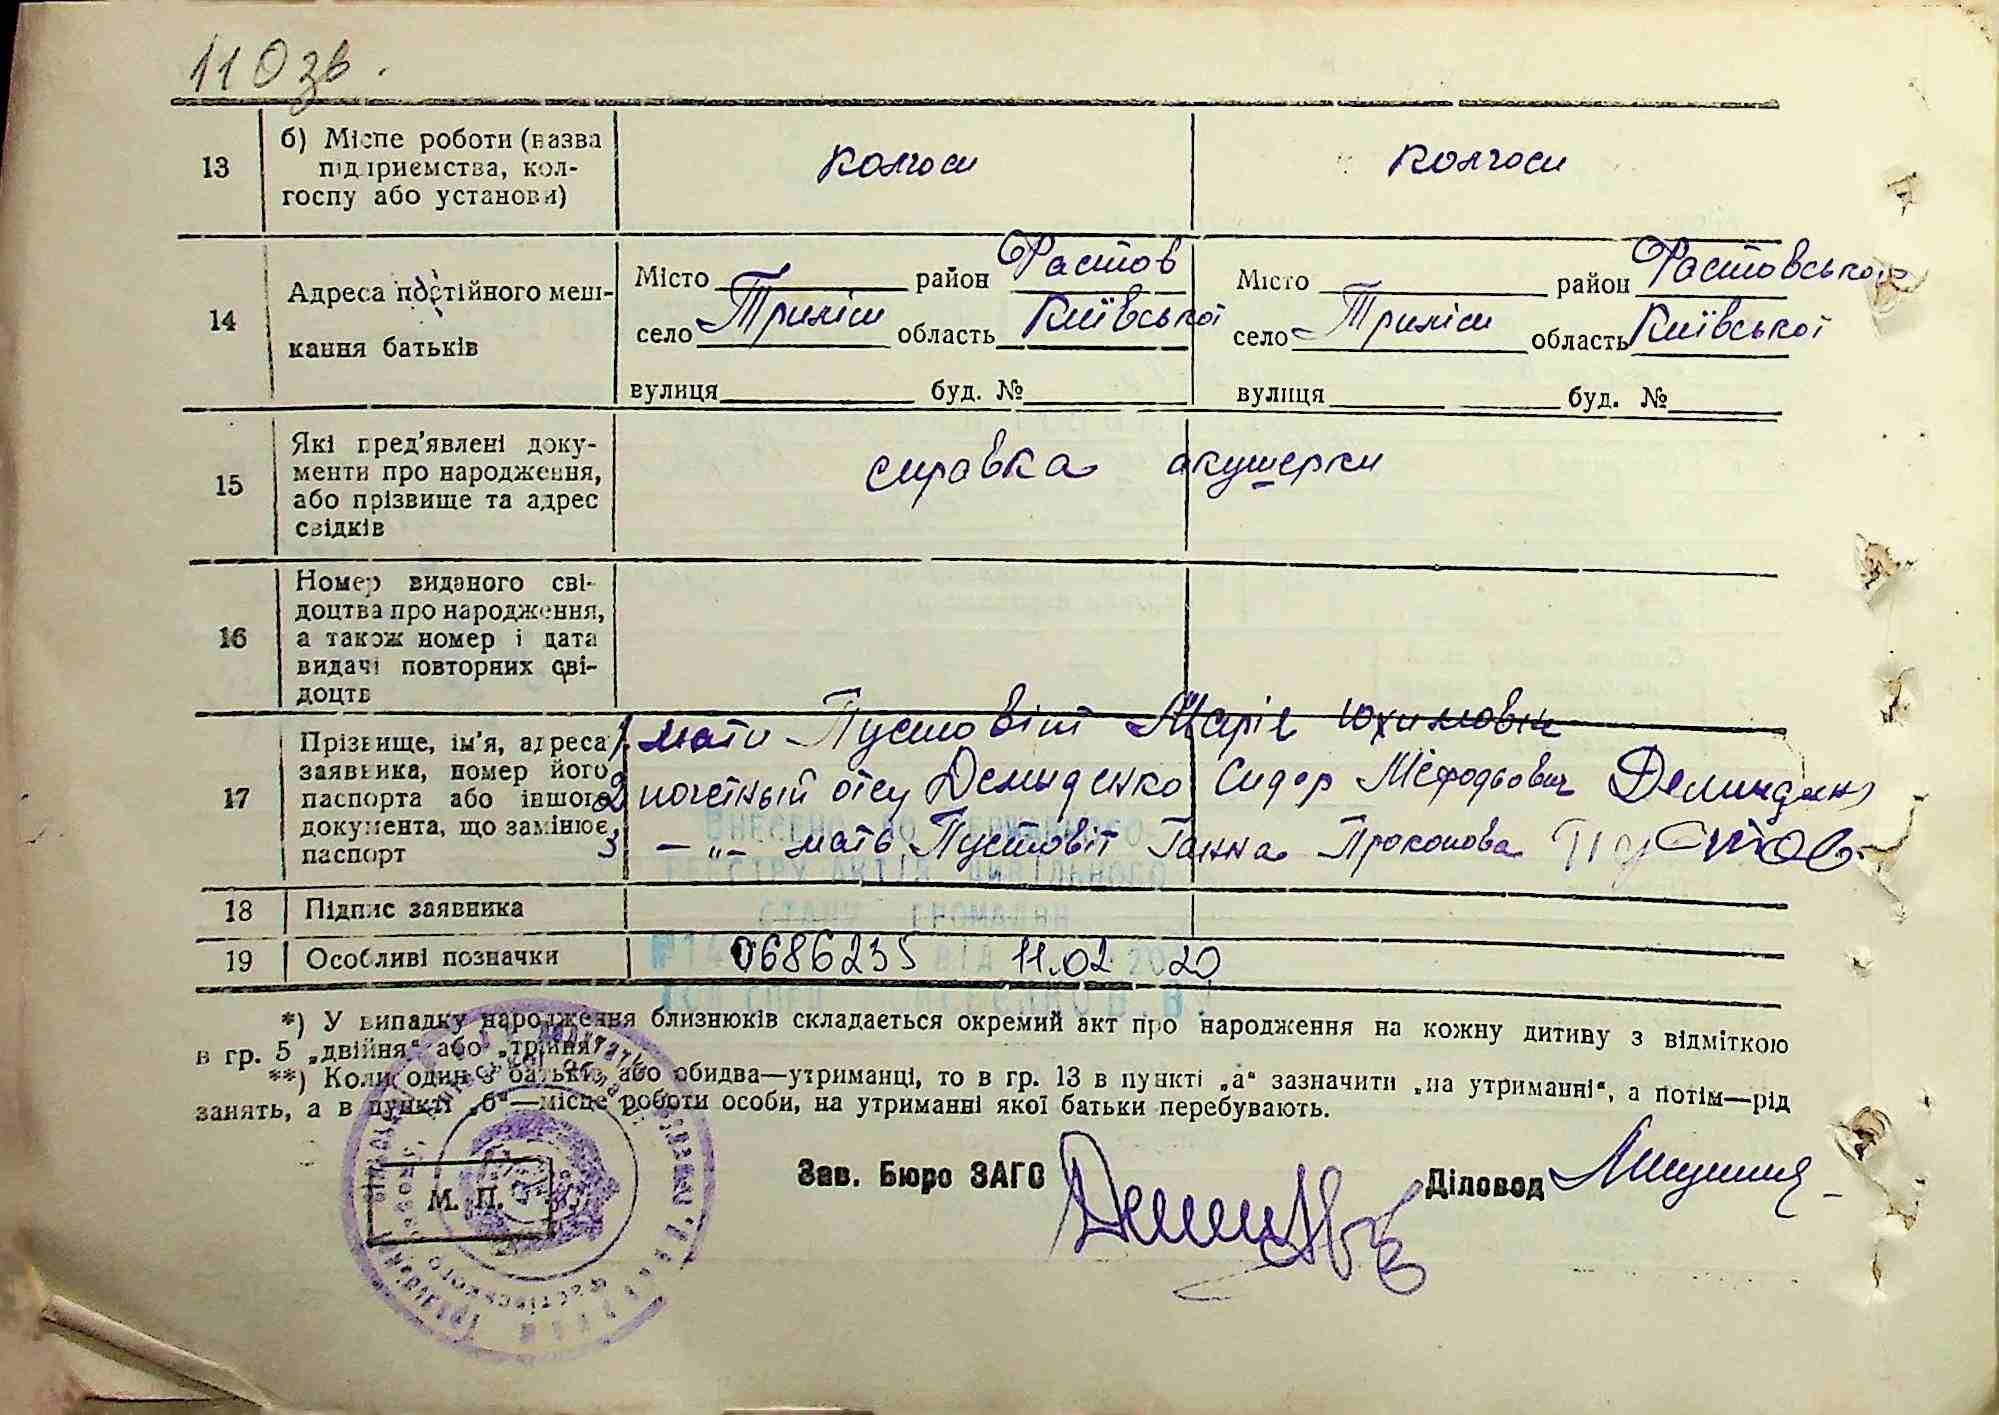 110 зв.
13
б) Місце роботи (назва
підприємства, кол-
госпу або установи)
колгосп
колгосп
14
Адреса постійного меш-
кання батьків
Місто район Фастов
село Триліси область Київської
вулиця буд. №
Місто район Фастовської
село Триліси область Київської
вулиця буд. №
15
Які пред'явлені доку-
менти про народження,
або прізвище та адрес
свідків
справка акушерки
16
Номер виданого сві-
доцтва про народження,
а також номер і дата
видачі повторних сві-
доцтв
17
Прізвище, ім'я, адреса
заявника, номер його
паспорта або іншого
документа, що замінює
паспорт
1. мати Пустовіт Марія Юхимовна
2 почетный отец Демиденко Сидор Мефодьович
3 — „ — мать Пустовіт Ганна Прокопова Пустов
ВНЕСЕНО ДО ДЕРЖАВНОГО
РЕЄСТРУ АКТІВ ЦИВІЛЬНОГО
СТАНУ ГРОМАДЯН
18
Підпис заявника
19
Особливі позначки
№ 0686235 ВІД 11.02.2020
*) У випадку народження близнюків складається окремий акт про народження на кожну дитину з відміткою
в гр. 5 „двійня“ або „трійня“.
**) Коли один з батьків або обидва—утриманці, то в гр. 13 в пункті „а“ зазначити „на утриманні“, а потім—рід
занять, а в пункті „б“—місце роботи особи, на утриманні якої батьки перебувають.
М. П.
Зав. Бюро ЗАГС
Діловод